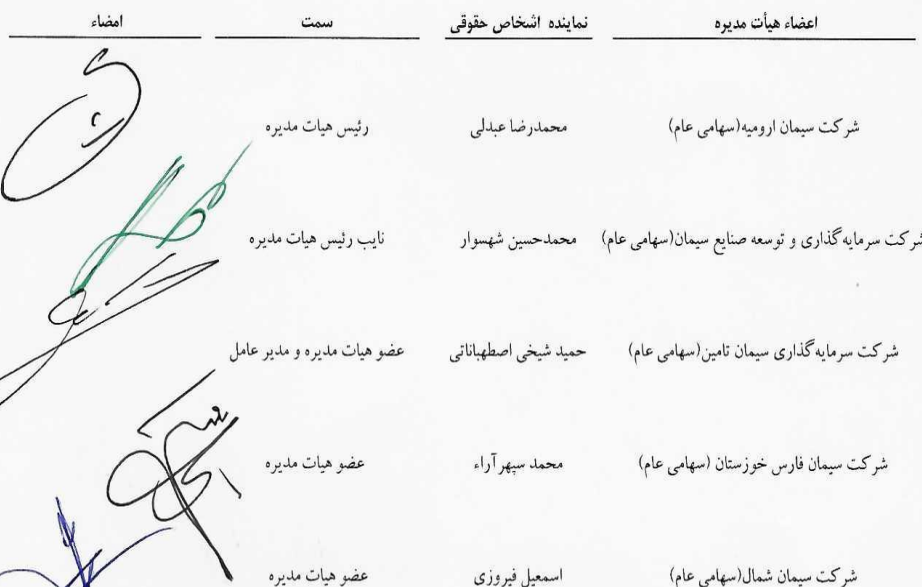 اعضاء هیأت مدیره نماینده اشخاص حقوقی سمت امضاء
شرکت سیمان ارومیه(سهامی عام) محمدرضا عبدلی رئیس هیات مدیره
شرکت سرمایه گذاری و توسعه صنایع سیمان(سهامی عام) محمدحسین شهسوار نایب رئیس هیات مدیره
شرکت سرمایه گذاری سیمان تامین(سهامی عام) حمید شیخی اصطهباناتی عضو هیات مدیره و مدیر عامل
شرکت سیمان فارس خوزستان (سهامی عام) محمد سپهر آراء عضو هیات مدیره
شرکت سیمان شمال(سهامی عام) اسمعیل فیروزی عضو هیات مدیره